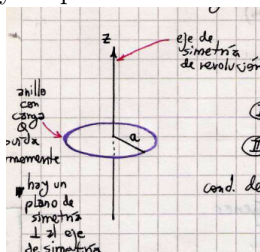 z
eje de
simetría
de revolución
anillo
con
carga
Q
a
hay un
plano de
simetría
⊥ al eje
de simetría
II
cond. de